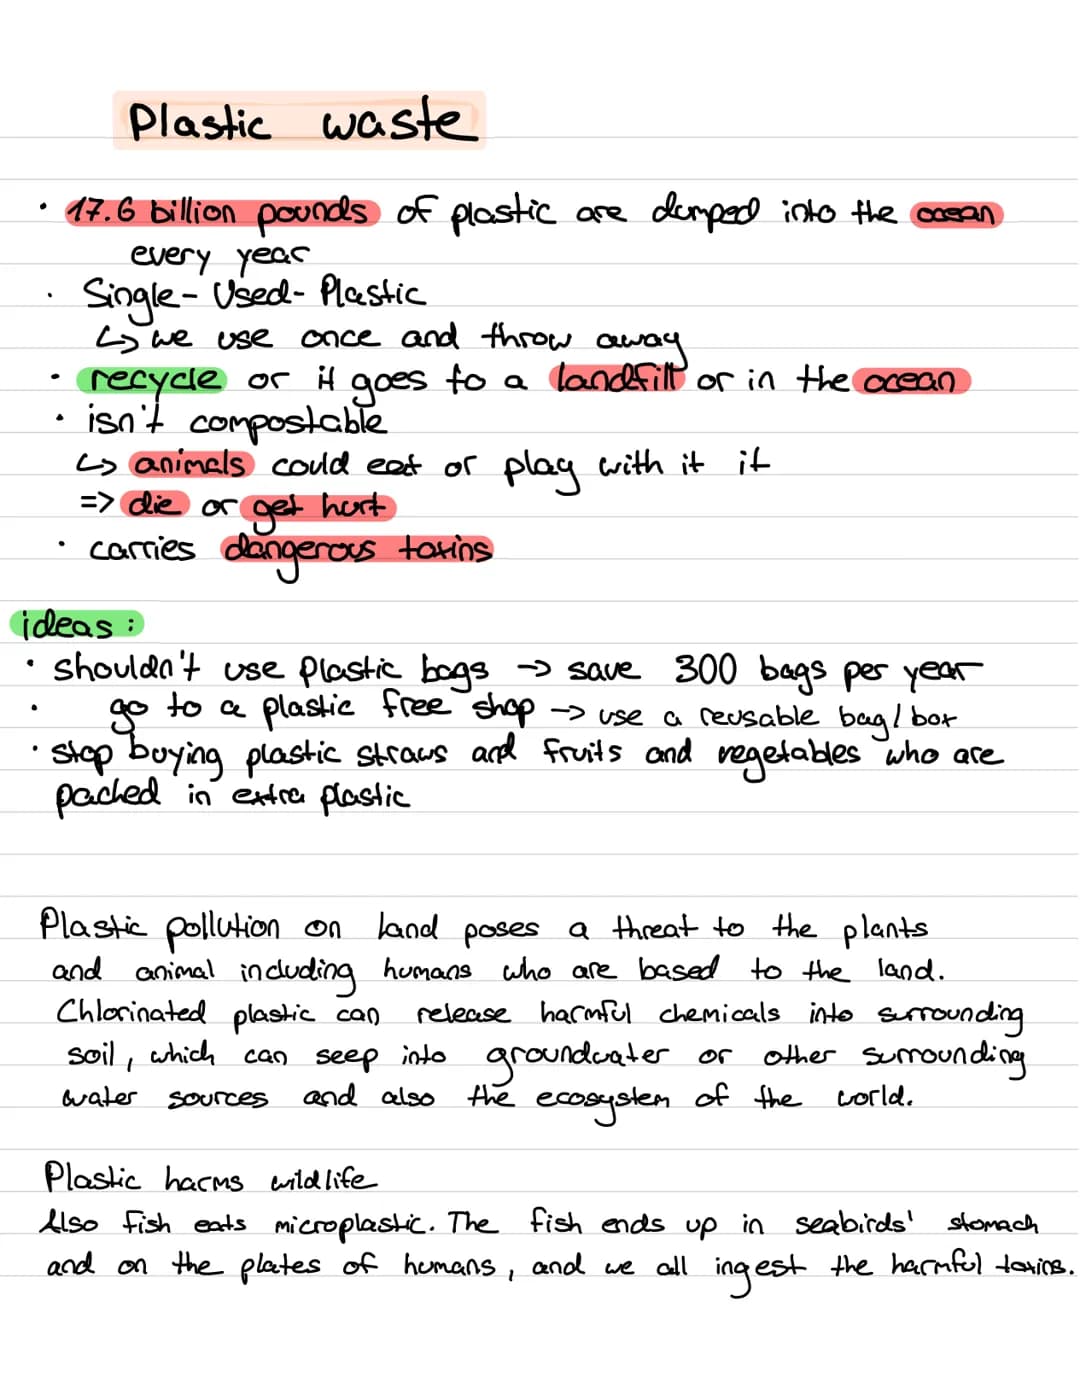 Plastic waste
· 17.6 billion pounds of plastic are dumped into the ocean
every year
· Single-Used-Plastic
↳ we use once and throw away
· recycle or it goes to a landfill or in the ocean
· isn't compostable
↳ animals could eat or play with it it
=> die or get hurt
· carries dangerous toxins
ideas:
· shouldn't use plastic bags → save 300 bags per year
· go to a plastic free shop → use a reusable bag/box
· stop buying plastic straws and fruits and vegetables who are
pached in extra plastic
Plastic pollution on land poses a threat to the plants
and animal including humans who are based to the land.
Chlorinated plastic can release harmful chemicals into surrounding
soil, which can seep into groundwater or other surrounding
water sources and also the ecosystem of the world.
Plastic harms wildlife
Also fish eats microplastic. The fish ends up in seabirds' stomach
and on the plates of humans, and we all ingest the harmful toxins.